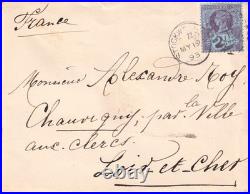 France
Monsieur Alexandre Roy
Chauvigny, par la Ville
aux-Clercs.
Loir et Cher
MY 19
99